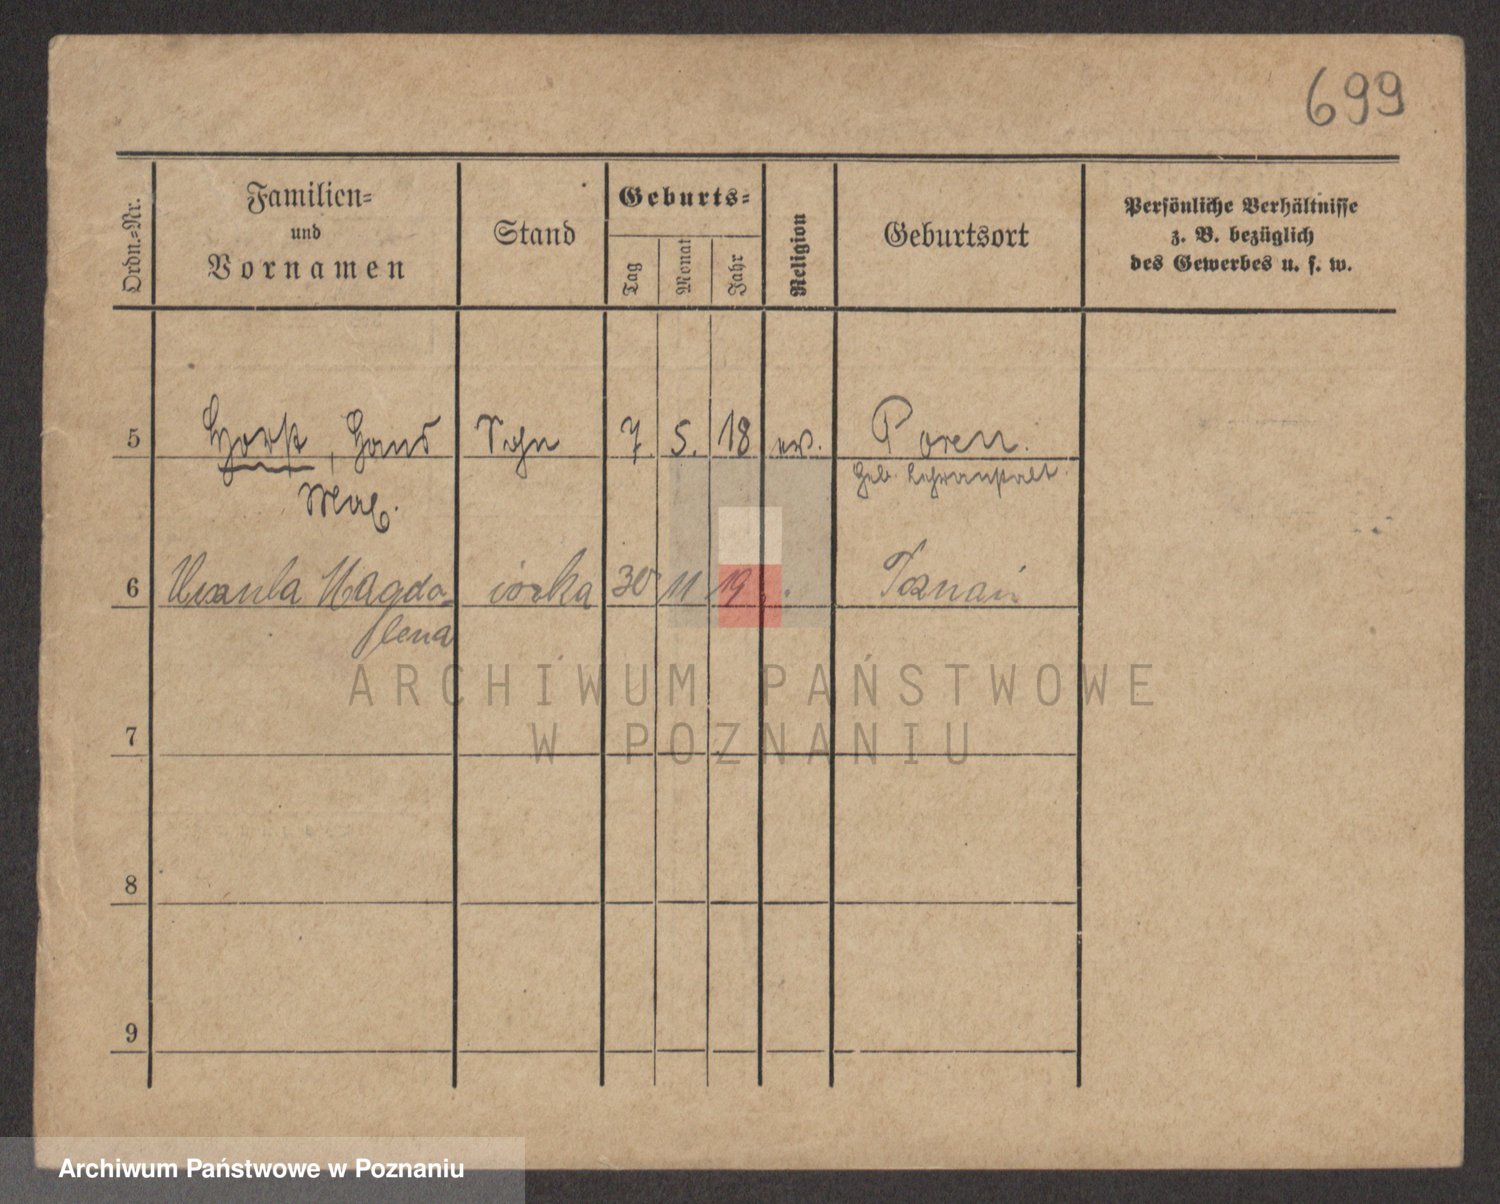 699
Ordn.-Nr.
Familien-
und
Vornamen
Stand
Geburts-
Tag
Monat
Jahr
Religion
Geburtsort
Persönliche Verhältnisse
z. B. bezüglich
des Gewerbes u. s. w.
5 Horst, Hans Sohn 7 5. 18 ev. Posen.
Max. Geb. Lehranstalt
6 Urszula Magda- córka 30 11 19 Poznań
lena
ARCHIWUM PAŃSTWOWE
W POZNANIU
7
8
9
Archiwum Państwowe w Poznaniu